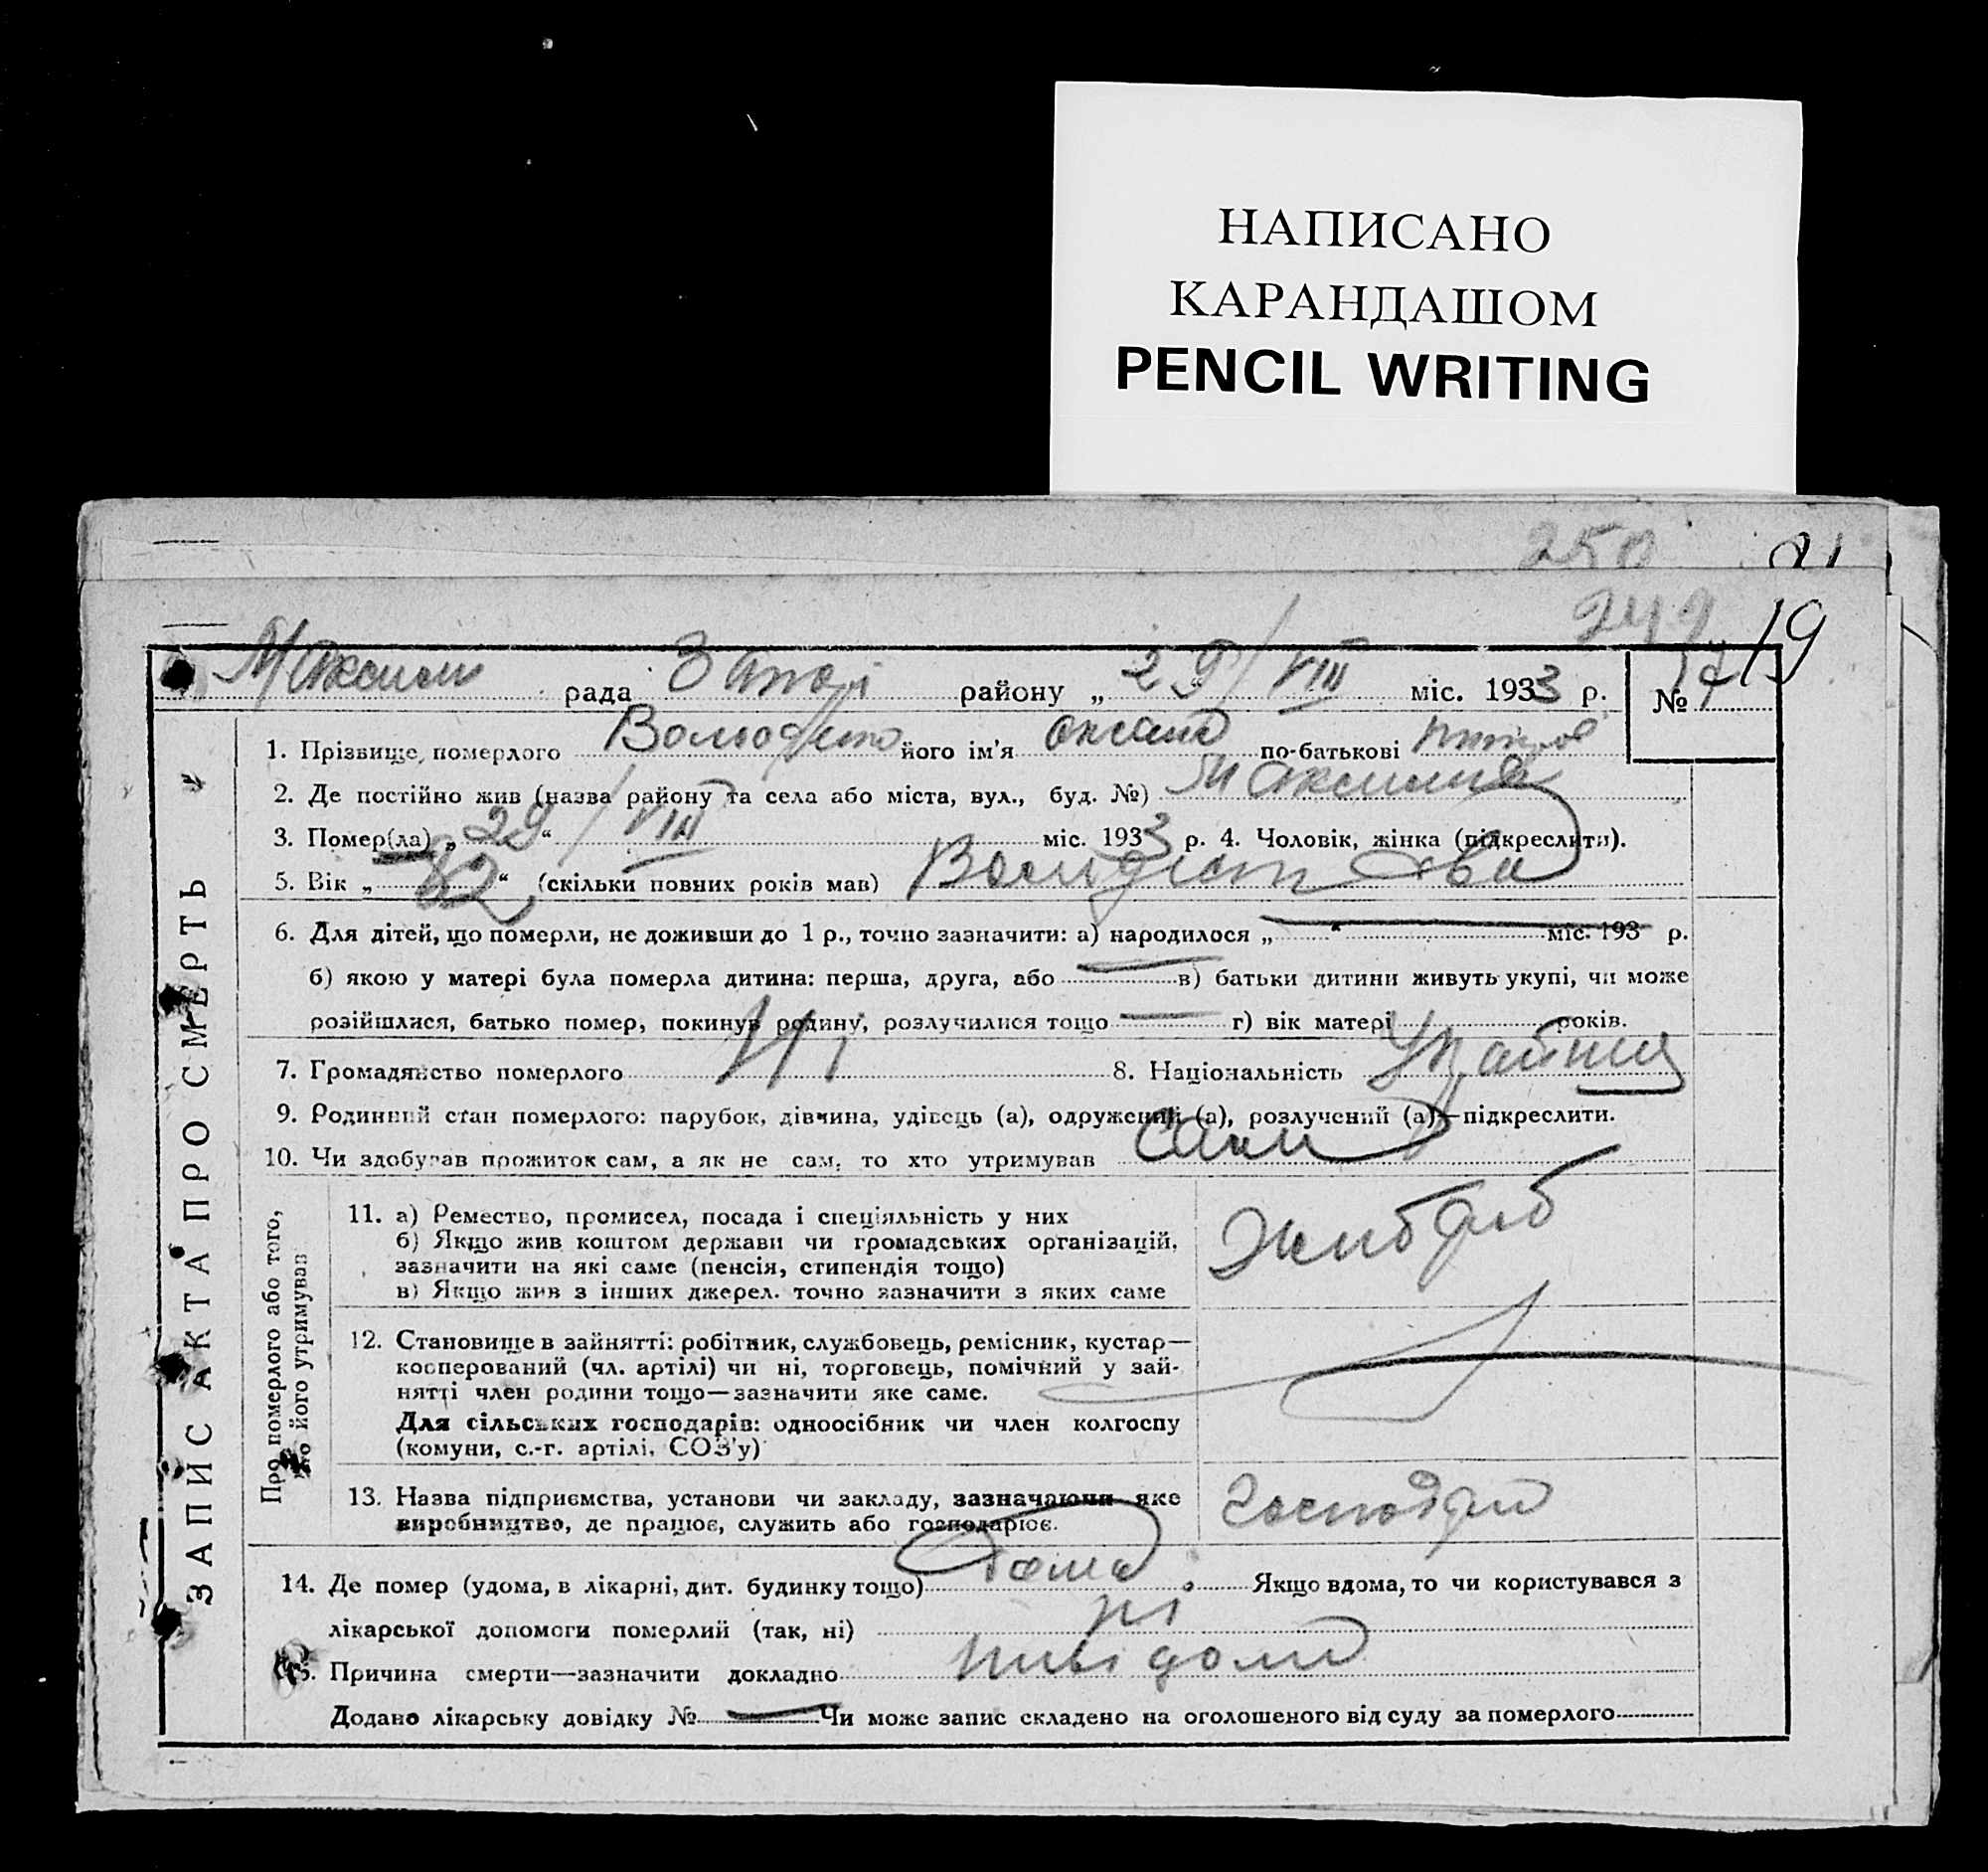 НАПИСАНО
КАРАНДАШОМ
PENCIL WRITING
250
249
19
ЗАПИС АКТА ПРО СМЕРТЬ
рада району „ 29/VIII міс. 1933 р. № 17
1. Прізвище, померлого його ім'я по-батькові
2. Де постійно жив (назва району та села або міста, вул., буд. №)
3. Помер(ла) „29“/VIII міс. 1933 р. 4. Чоловік, жінка (підкреслити).
5. Вік „82“ (скільки повних років мав)
6. Для дітей, що померли, не доживши до 1 р., точно зазначити: а) народилося „ “ міс. 193 р.
б) якою у матері була померла дитина: перша, друга, або в) батьки дитини живуть укупі, чи може
розійшлися, батько помер, покинув родину, розлучилися тощо г) вік матері років.
7. Громадянство померлого 8. Національність
9. Родинний стан померлого: парубок, дівчина, удівець (а), одружений (а), розлучений (а)—підкреслити.
10. Чи здобував прожиток сам, а як не сам, то хто утримував
Про померлого або того, хто його утримував
11. а) Ремество, промисел, посада і спеціяльність у них
б) Якщо жив коштом держави чи громадських організацій,
зазначити на які саме (пенсія, стипендія тощо)
в) Якщо жив з інших джерел. точно зазначити з яких саме
12. Становище в зайнятті: робітник, службовець, ремісник, кустар—
косперований (чл. артілі) чи ні, торговець, помічний у зай-
нятті член родини тощо—зазначити яке саме.
Для сільських господарів: одноосібник чи член колгоспу
(комуни, с.-г. артілі, СОЗ'у)
13. Назва підприємства, установи чи закладу, зазначаючи яке
виробництво, де працює, служить або господарює.
14. Де помер (удома, в лікарні, дит. будинку тощо) дома Якщо вдома, то чи користувався з
лікарської допомоги померлий (так, ні) ні
15. Причина смерти—зазначити докладно
Додано лікарську довідку № Чи може запис складено на оголошеного від суду за померлого